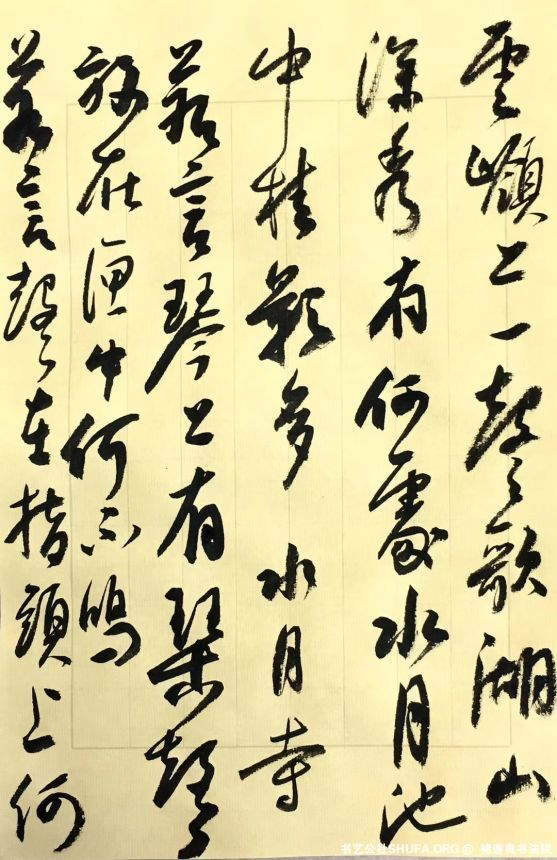 雲嶺上一聲歌湖山
深秀有何處水月池
中桂影多 水月寺
若言琴上有琴聲
放在匣中何不鳴
若言聲在指頭上何
书艺公社SHUFA.ORG @ 褚遂良书法院